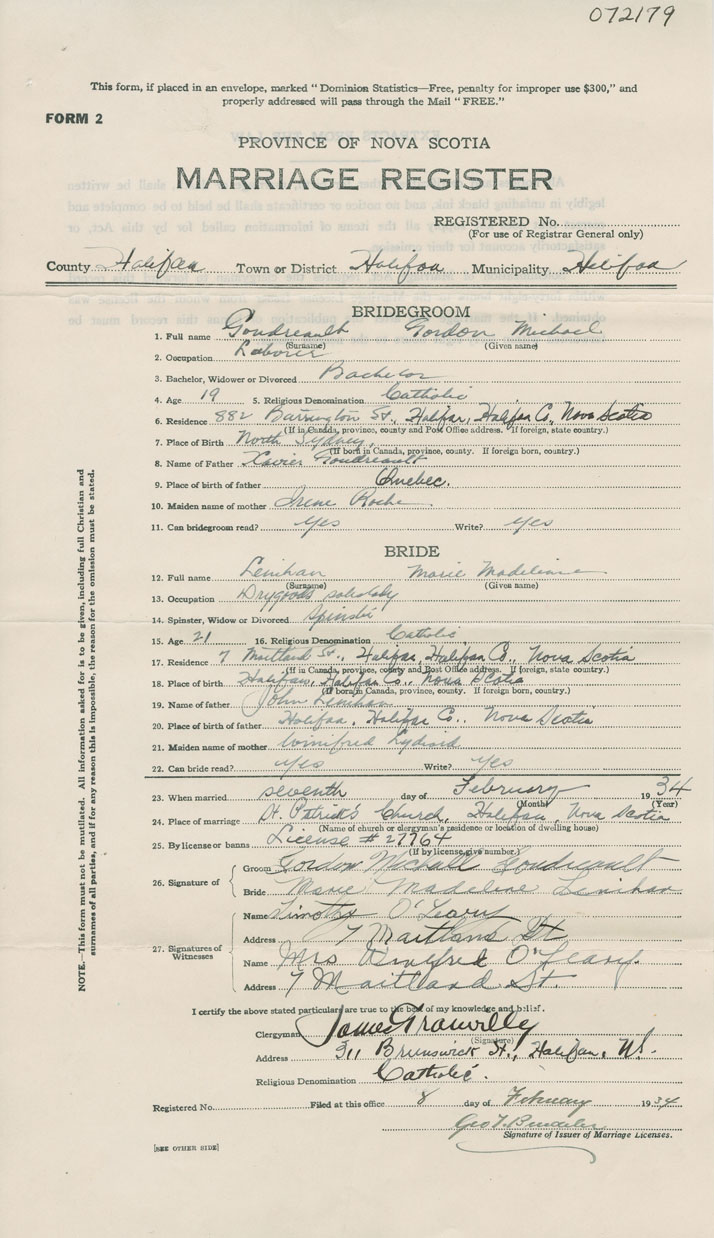 072179
This form, if placed in an envelope, marked "Dominion Statistics—Free, penalty for improper use $300," and
properly addressed will pass through the Mail "FREE."
FORM 2
PROVINCE OF NOVA SCOTIA
MARRIAGE REGISTER
REGISTERED No.
(For use of Registrar General only)
County Halifax Town or District Halifax Municipality Halifax
BRIDEGROOM
1. Full name Goudreault Gordon Michael
(Surname) (Given name)
2. Occupation Laborer
3. Bachelor, Widower or Divorced Bachelor
4. Age 19 5. Religious Denomination Catholic
6. Residence 882 Barrington St., Halifax, Halifax Co., Nova Scotia
(If in Canada, province, county and Post Office address. If foreign, state country.)
7. Place of Birth North Sydney,
(If born in Canada, province, county. If foreign born, country.)
8. Name of Father Xavier Goudreault
9. Place of birth of father Quebec.
10. Maiden name of mother Irene Roche
11. Can bridegroom read? yes Write? yes
BRIDE
12. Full name Lenihan Marie Madeline
(Surname) (Given name)
13. Occupation Drygoods
14. Spinster, Widow or Divorced Spinster
15. Age 21 16. Religious Denomination Catholic
17. Residence 7 Maitland St., Halifax, Halifax Co., Nova Scotia
(If in Canada, province, county and Post Office address. If foreign, state country.)
18. Place of birth Halifax, Halifax Co., Nova Scotia
(If born in Canada, province, county. If foreign born, country.)
19. Name of father John Lenihan
20. Place of birth of father Halifax, Halifax Co., Nova Scotia
21. Maiden name of mother Winifred Lydiard
22. Can bride read? yes Write? yes
23. When married seventh day of February 1934
(Month) (Year)
24. Place of marriage St. Patrick's Church, Halifax, Nova Scotia
(Name of church or clergyman's residence or location of dwelling house)
25. By license or banns License # 27764
(If by license, give number.)
26. Signature of Groom Gordon Michael Goudreault
Bride Marie Madeline Lenihan
27. Signatures of Witnesses
Name Timothy O'Leary
Address 7 Maitland St
Name Mrs Winifred O'Leary.
Address 7 Maitland St.
I certify the above stated particulars are true to the best of my knowledge and belief.
Clergyman James
(Signature)
Address 311 Brunswick St., Halifax, N.S.
Religious Denomination Catholic.
Registered No. Filed at this office 8 day of February 1934
Geo
Signature of Issuer of Marriage Licenses.
[SEE OTHER SIDE]
NOTE.—This form must not be mutilated. All information asked for is to be given, including full Christian and
surnames of all parties, and if for any reason this is impossible, the reason for the omission must be stated.